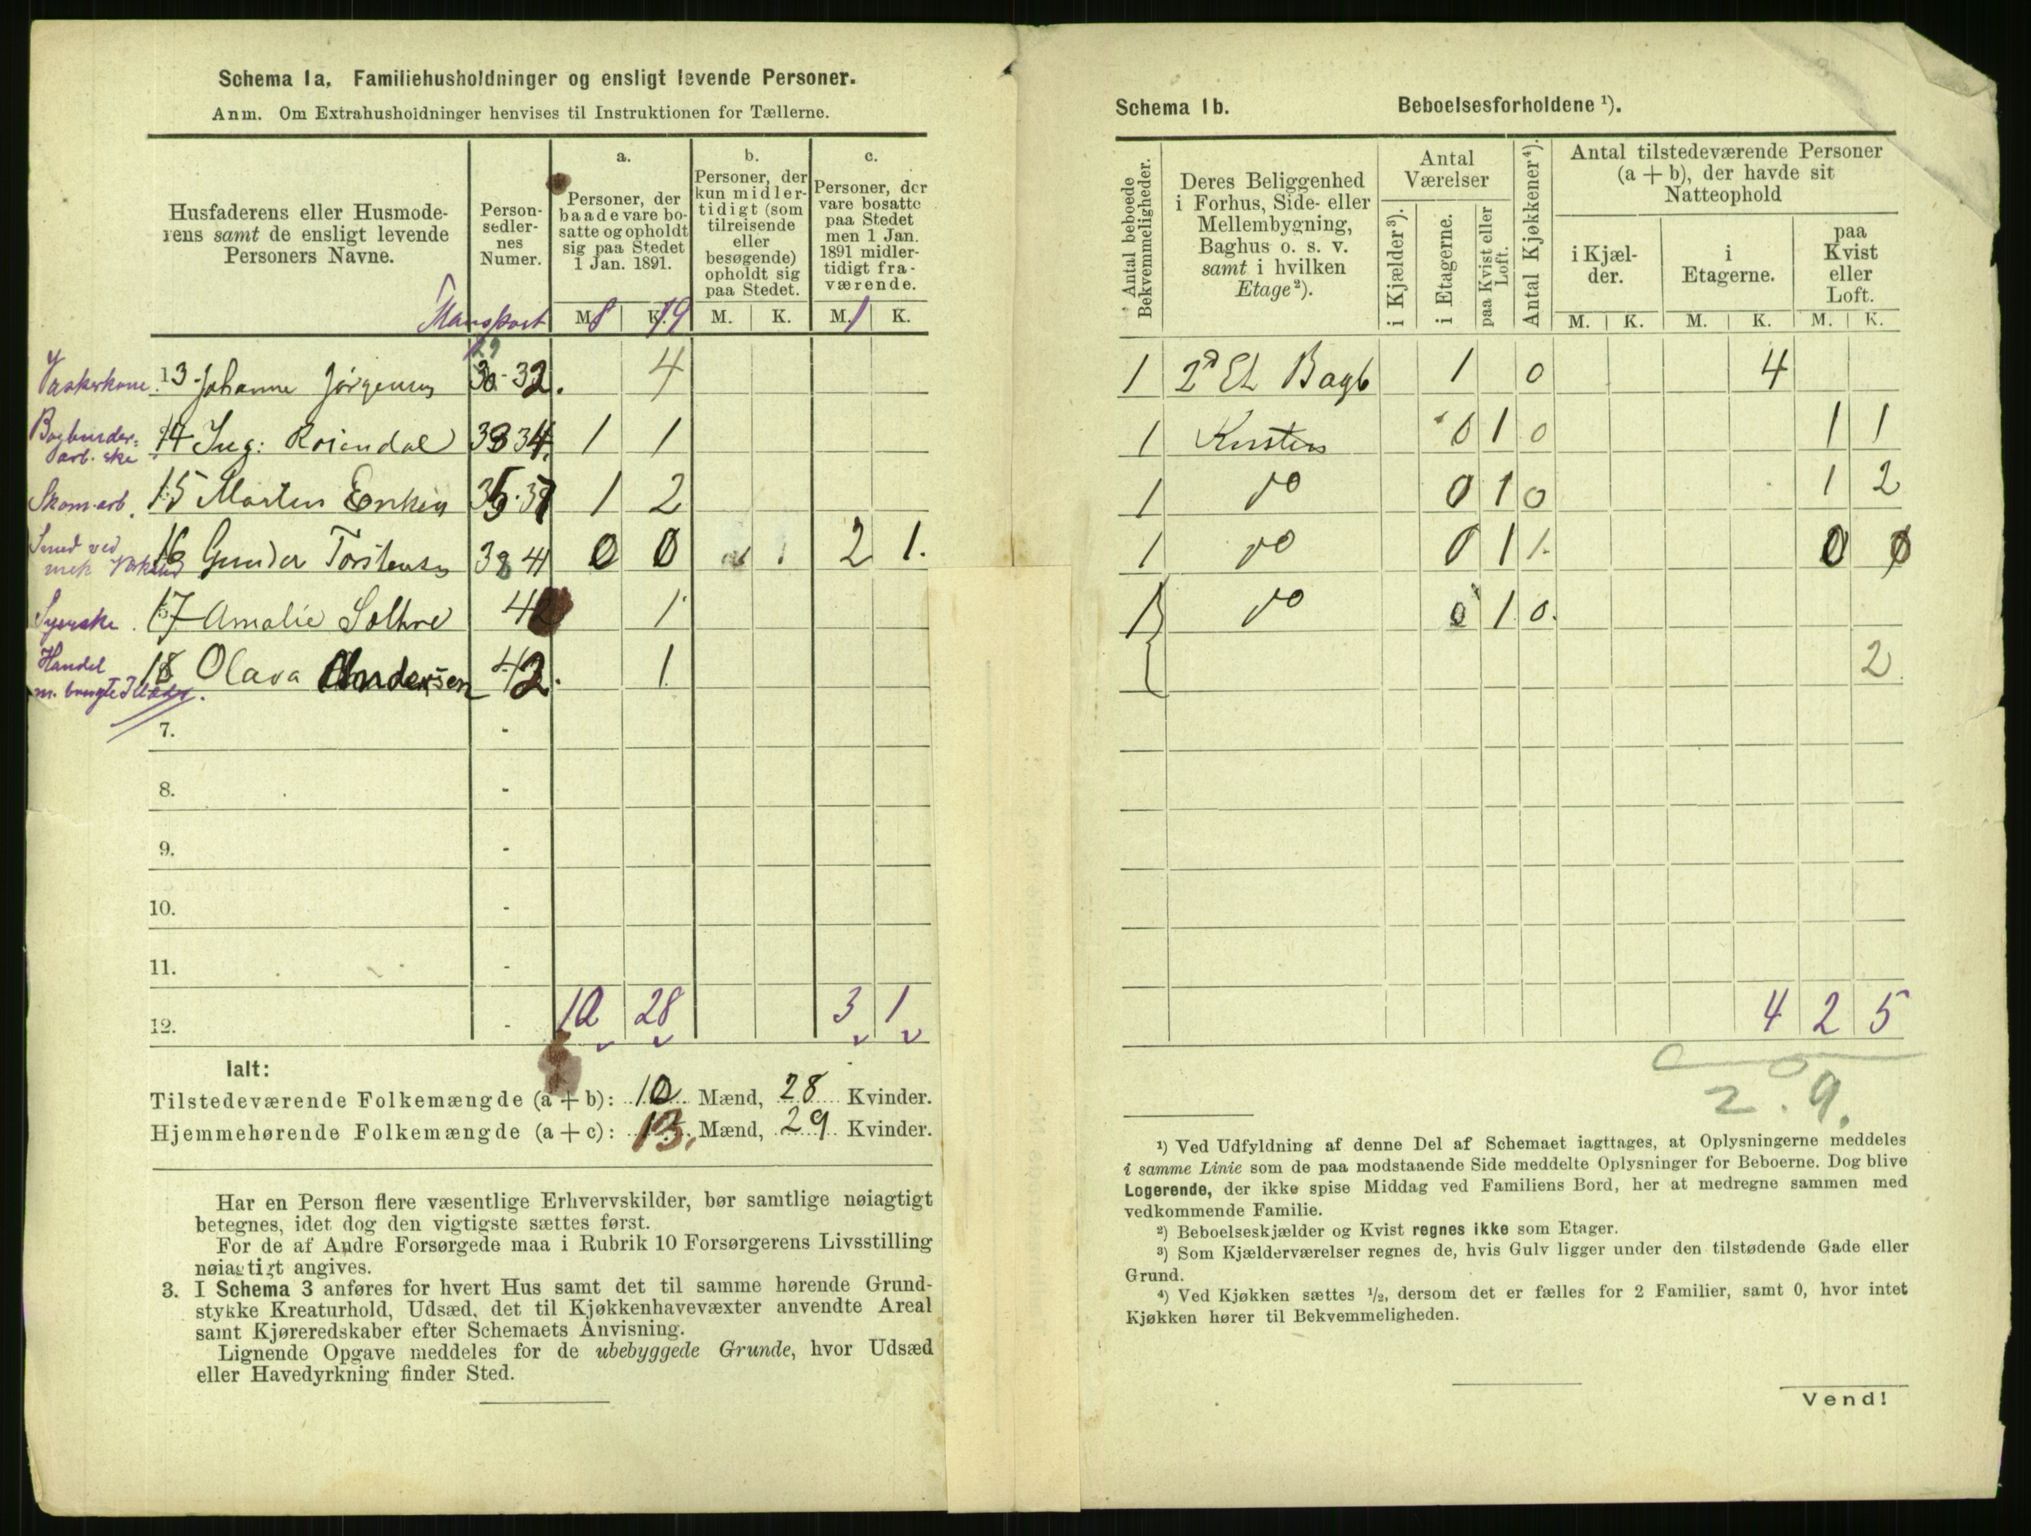 Schema 1a. Familiehusholdninger og ensligt levende Personer.
Anm. Om Extrahusholdninger henvises til Instruktionen for Tællerne.
Husfaderens eller Husmode-
rens samt de ensligt levende
Personers Navne.
Person-
sedler-
nes
Numer.
a.
Personer, der
baade vare bo-
satte og opholdt
sig paa Stedet
1 Jan. 1891.
b.
Personer, der
kun midler-
tidigt (som
tilreisende
eller
besøgende)
opholdt sig
paa Stedet.
c.
Personer, der
vare bosatte
paa Stedet
men 1 Jan.
1891 midler-
tidigt fra-
værende.
Transport M. 8 K. 19 M. K. M. 1 K.
Vaskerkone. 13 Johanne Jørgensen 29 30-32. 4
Bogbinder-
arb.ske 14 Ing: Rosendal 33 34. 1 1
Skom.arb. 15 Morten Eriksen 35-37 1 2
Smed ved
mek Værksted 16 Gunder Torstensen 38 41 0 0 2 1.
Syerske. 17 Amalie Solhne 42 1
Handel
m. brugte Klæder. 18 Olava Andersen 42. 1
7. -
8. -
9. -
10. -
11. -
12. - 10 28 3 1
Ialt:
Tilstedeværende Folkemængde (a + b): 10 Mænd, 28 Kvinder.
Hjemmehørende Folkemængde (a + c): 13. Mænd, 29 Kvinder.
Har en Person flere væsentlige Erhvervskilder, bør samtlige nøiagtigt
betegnes, idet dog den vigtigste sættes først.
For de af Andre Forsørgede maa i Rubrik 10 Forsørgerens Livsstilling
nøiagtigt angives.
3. I Schema 3 anføres for hvert Hus samt det til samme hørende Grund-
stykke Kreaturhold, Udsæd, det til Kjøkkenhavevæxter anvendte Areal
samt Kjøreredskaber efter Schemaets Anvisning.
Lignende Opgave meddeles for de ubebyggede Grunde, hvor Udsæd
eller Havedyrkning finder Sted.
Schema 1b. Beboelsesforholdene ¹).
Antal beboede
Bekvemmeligheder.
Deres Beliggenhed
i Forhus, Side- eller
Mellembygning,
Baghus o. s. v.
samt i hvilken
Etage²).
Antal
Værelser
i Kjælder³).
i Etagerne.
paa Kvist eller
Loft.
Antal Kjøkkener⁴).
Antal tilstedeværende Personer
(a + b), der havde sit
Natteophold
i Kjæl-
der.
i
Etagerne.
paa
Kvist
eller
Loft.
M. K. M. K. M. K.
1 2d Et Bagb 1 0 4
1 Kvisten 0 1 0 1 1
1 do 0 1 0 1 2
1 do 0 1 1. 0 0
1 do 0 1. 0.
2
4 2 5
2. 9.
¹) Ved Udfyldning af denne Del af Schemaet iagttages, at Oplysningerne meddeles
i samme Linie som de paa modstaaende Side meddelte Oplysninger for Beboerne. Dog blive
Logerende, der ikke spise Middag ved Familiens Bord, her at medregne sammen med
vedkommende Familie.
²) Beboelseskjælder og Kvist regnes ikke som Etager.
³) Som Kjælderværelser regnes de, hvis Gulv ligger under den tilstødende Gade eller
Grund.
⁴) Ved Kjøkken sættes ½, dersom det er fælles for 2 Familier, samt 0, hvor intet
Kjøkken hører til Bekvemmeligheden.
Vend!